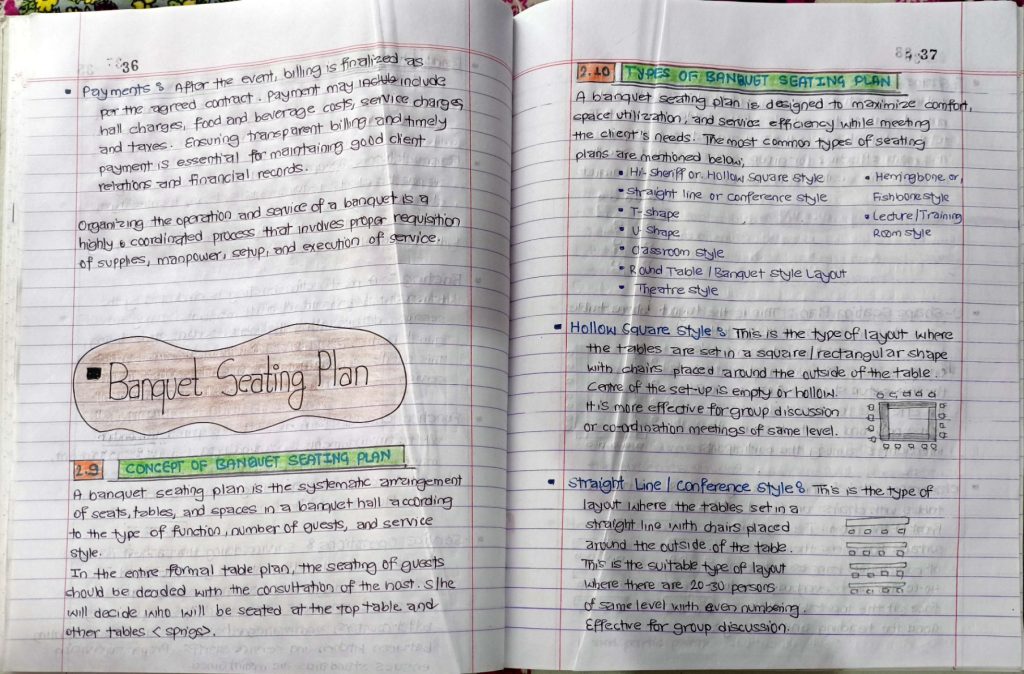 36
• Payments : After the event, billing is finalized as
per the agreed contract. Payment may include
hall charges, food and beverage costs, service charges,
and taxes. Ensuring transparent billing and timely
payment is essential for maintaining good client
relations and financial records.
Organizing the operation and service of a banquet is a
highly coordinated process that involves proper requisition
of supplies, manpower, setup, and execution of service.
Banquet Seating Plan
2.9 CONCEPT OF BANQUET SEATING PLAN
A banquet seating plan is the systematic arrangement
of seats, tables, and spaces in a banquet hall according
to the type of function, number of guests, and service
style.
In the entire formal table plan, the seating of guests
should be decided with the consultation of the host. S/he
will decide who will be seated at the top table and
other tables < sprigs>.
37
2.10 TYPES OF BANQUET SEATING PLAN
A banquet seating plan is designed to maximize comfort,
space utilization, and service efficiency while meeting
the client's needs. The most common types of seating
plans are mentioned below;
• Hi-sheriff or Hollow Square style
• Straight line or conference style
• T-shape
• U-shape
• Classroom style
• Round Table / Banquet Style Layout
• Theatre style
• Herringbone or,
Fishbone style
• Lecture/Training
Room style
• Hollow Square Style : This is the type of layout where
the tables are set in a square / rectangular shape
with chairs placed around the outside of the table.
Centre of the set-up is empty or hollow.
It is more effective for group discussion
or co-ordination meetings of same level.
• Straight Line / Conference Style : This is the type of
layout where the tables set in a
straight line with chairs placed
around the outside of the table.
This is the suitable type of layout
where there are 20-30 persons
of same level with even numbering.
Effective for group discussion.